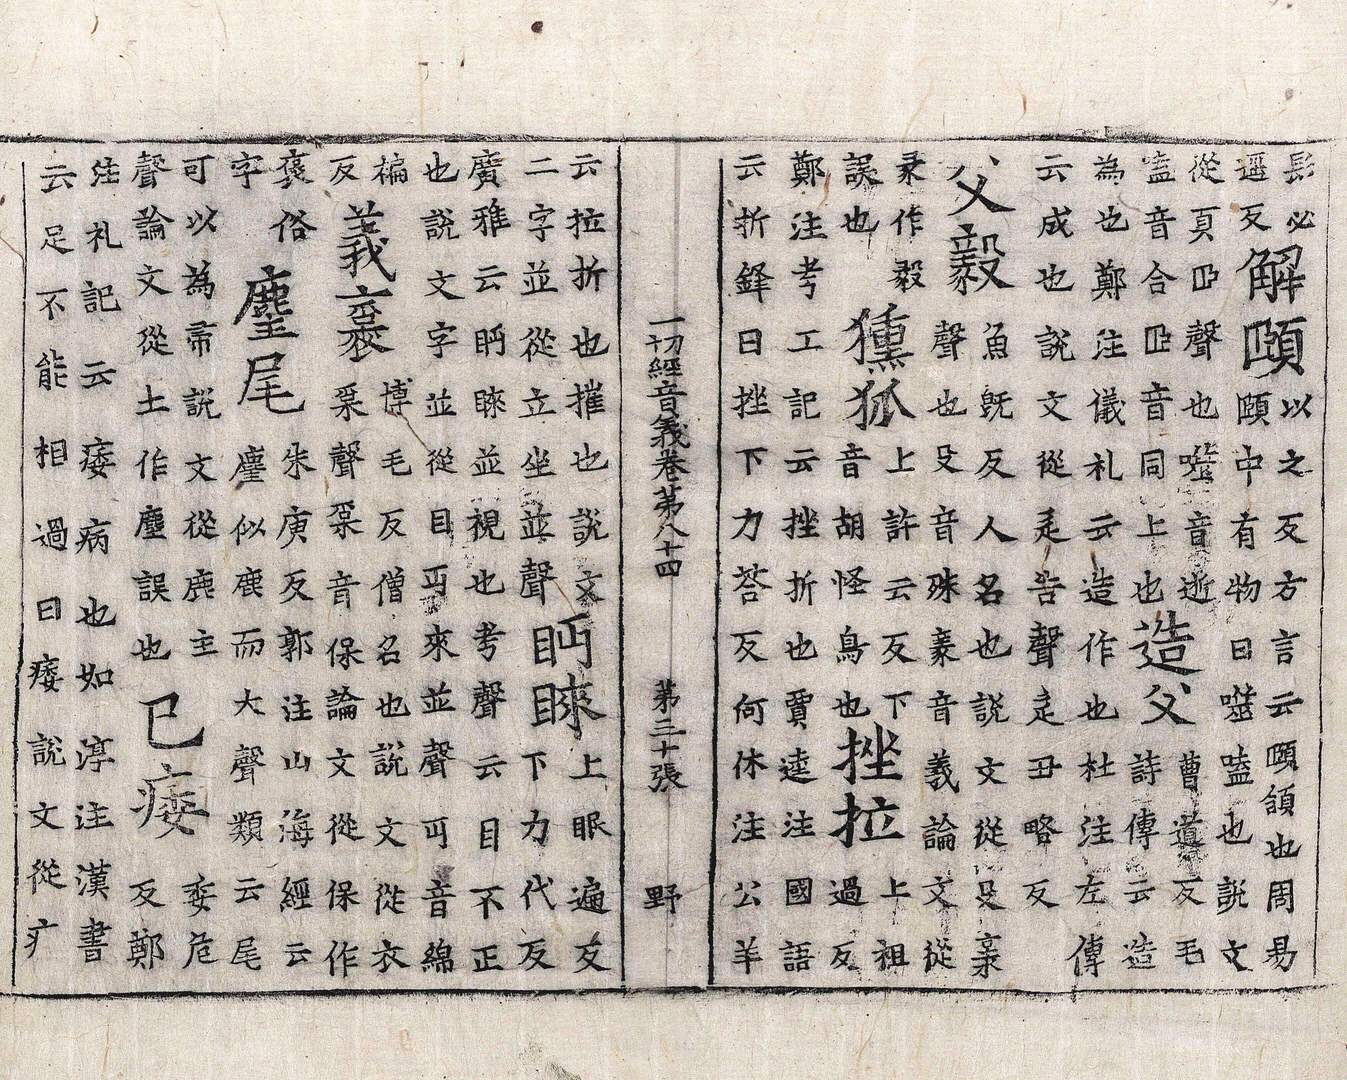 髟必
遥反
解頤
以之反方言云頤頷也周易
頤中有物曰噬嗑也說文
從頁𦣝聲也噬音逝
嗑音合𦣝音同上也
造父
曹道反毛
詩傳云造
為也鄭注儀札云造作也杜注左傳
云成也說文從辵告聲辵丑略反
父毅
魚旣反人名也說文從殳豙
聲也殳音殊豙音義論文從
豙作毅
誤也
獯狐
上許云反下
音胡怪鳥也
挫拉
上祖
過反
鄭注考工記云挫折也賈逵注國語
云折鋒曰挫下力荅反何休注公羊
一切經音義卷第八十四 第三十張 野
云拉折也摧也說文
二字並從立坐並聲
眄睞
上眠遍反
下力代反
廣雅云眄睞並視也考聲云目不正
也說文字並從目丏來並聲丏音綿
褊
反
義褒
博毛反僧名也說文從衣
𣎼聲𣎼音保論文從保作
褒俗
字
麈尾
朱庾反郭注山海經云
麈似鹿而大聲類云尾
可以為帚說文從鹿主
聲論文從土作塵誤也
已痿
委危
反鄭
注礼記云痿病也如淳注漢書
云足不能相過曰痿說文從疒